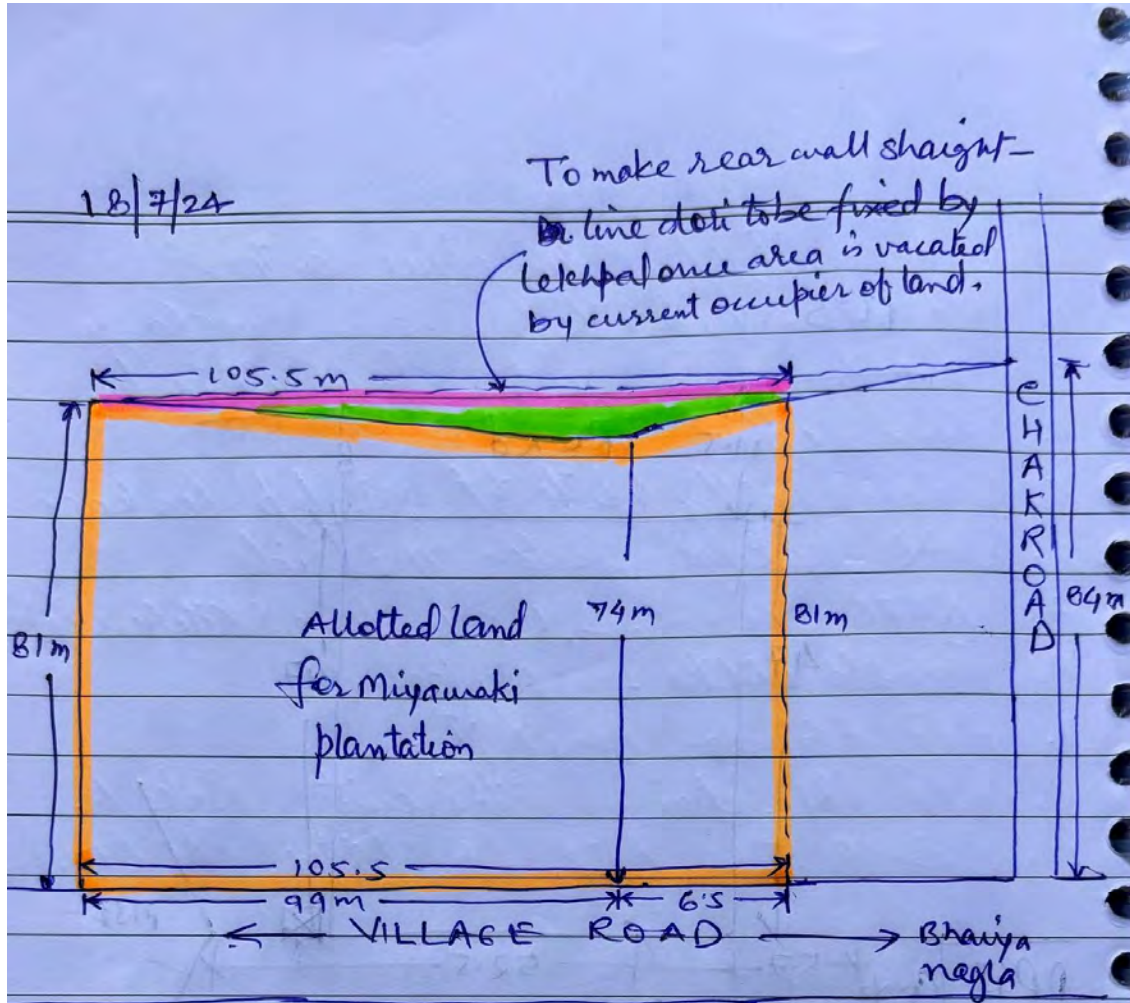 18/7/24
To make rear wall shaight-
line doti to be fixed by
Lekhpal once area is vacated
by current occupier of land.
105.5m
CHAKROAD
81m
Allotted land
for Miyawaki
plantation
74m
81m
84m
105.5
99m
6.5
VILLAGE ROAD
Bhaiya
nagla